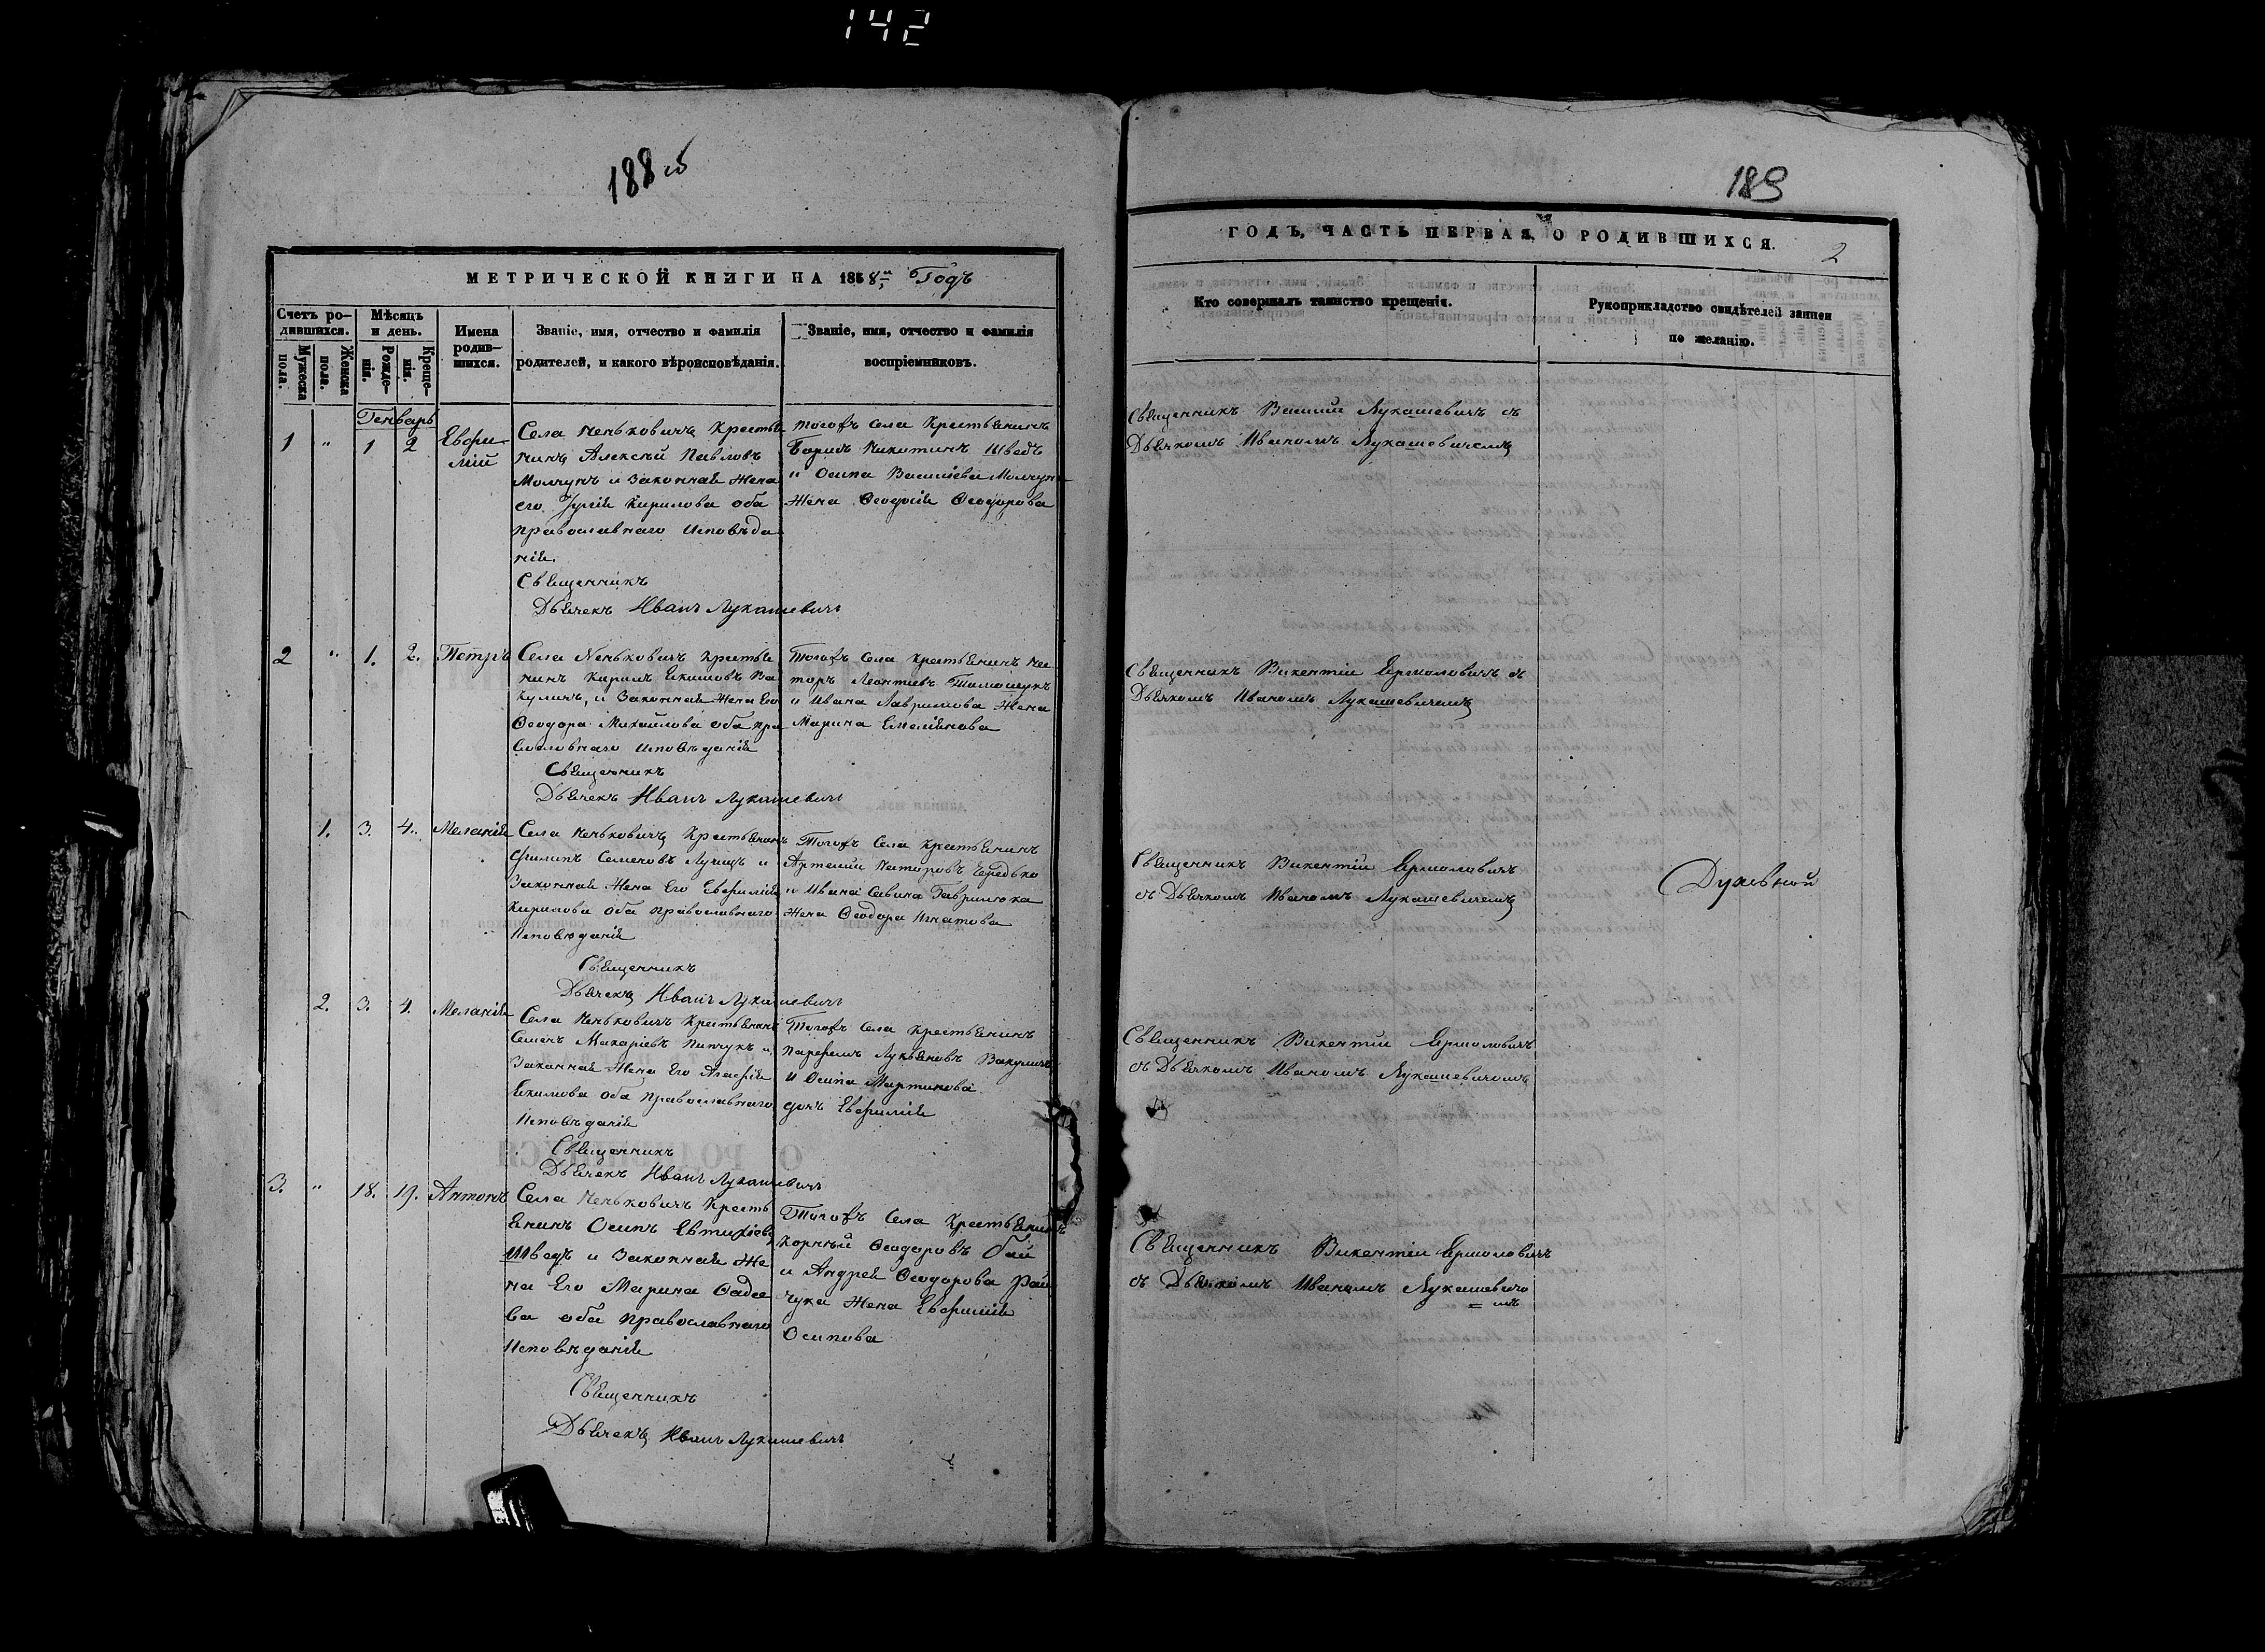 142
188 об
189
МЕТРИЧЕСКОЙ КНИГИ НА 1858й Годъ
ГОДЪ, ЧАСТЬ ПЕРВАЯ, О РОДИВШИХСЯ.
2
Счетъ ро-
дившихся.
Мужеска
пола.
Женска
пола.
Мѣсяцъ
и день.
Рожде-
нія.
Креще-
нія.
Имена
родив-
шихся.
Званіе, имя, отчество и фамилія
родителей, и какого вѣроисповѣданія.
Званіе, имя, отчество и фамилія
воспріемниковъ.
Кто совершалъ таинство крещенія.
Рукоприкладство свидѣтелей записи
по желанію.
Генварь
1 " 1 2
Евфи-
мій
Села Неньковичъ Крестья
нинъ Алексѣй Павловъ
Молчунъ и Законная Жена
его Кирилова оба
православнаго Исповѣда
нія.
Священникъ
Дьячекъ Иванъ Лукашевичъ
тогожъ Села Крестьянинъ
Борисъ Никитинъ Шведъ
и Осипа Василіева Молчуна
Жена Ѳеодосія Ѳеодорова
Священникъ Василій Лукашевичъ съ
Дьячкомъ Иваномъ Лукашевичемъ
2 " 1. 2. Петръ
Села Неньковичъ Крестья
нинъ Кирилъ Екимовъ Ва
куличъ, и Законная Жена Его
Ѳеодора Михайлова оба пра
вославнаго Исповѣданія
Священникъ
Дьячекъ Иванъ Лукашевичъ
Тогожъ Села Крестьянинъ Нес
торъ Леонтіевъ Тимошукъ
и Ивана Лавринова Жена
Марина Емеліянова
Священникъ Викентій Ярмоловичъ съ
Дьячкомъ Иваномъ Лукашевичемъ
1. 3. 4. Меланія
Села Неньковичъ Крестьянинъ
Филипъ Семеновъ Лучицъ и
Законная Жена Его Евфимія
Кирилова оба православнаго
Исповѣданія
Священникъ
Дьячекъ Иванъ Лукашевичъ
Тогожъ Села Крестьянинъ
Артемій Несторовъ
и Ивана Савина Гаврилюка
Жена Ѳеодора Игнатова
Священникъ Викентій Ярмоловичъ
съ Дьячкомъ Иваномъ Лукашевичемъ
Духовной
2. 3. 4. Меланія
Села Неньковичъ Крестьянинъ
Семенъ Макаріевъ Пипчукъ и
Законная Жена Его Агафія
Екимова оба православнаго
Исповѣданія
Священникъ
Дьячекъ Иванъ Лукашевичъ
Тогожъ Села Крестьянинъ
Парфемъ Лукьяновъ Вакуличъ
и Осипа Мартинова
дочь Евфимія
Священникъ Викентій Ярмоловичъ
съ Дьячкомъ Иваномъ Лукашевичомъ
3. " 18. 19. Антонъ
Села Неньковичъ Кресть
янинъ Осипъ Евтихіевъ
Шведъ и Законная Же
на Его Марина Ѳадее
ва оба православнаго
Исповѣданія
Священникъ
Дьячекъ Иванъ Лукашевичъ
Тогожъ Села Крестьянинъ
Корнѣй Ѳеодоровъ Бай
и Андрея Ѳеодорова Рай
чука Жена Евфимія
Осипова
Священникъ Викентій Ярмоловичъ
съ Дьячкомъ Иваномъ Лукашевичо
= мъ